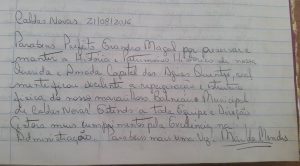 Caldas Novas, 21/08/2016
Parabéns Prefeito Evandro Magal por preservar e
manter a História e Patrimônio Histórico de nossa
Querida e Amada Capital das Águas Quentes, real
mente ficou excelente a repaginação e estrutu
física do nosso maravilhoso Balneário Municipal
de Caldas Novas. Extendo a toda Equipe e Direção
Gestora meus cumprimentos pela Excelência na
Administração. Parabéns mais uma Vez! Mendes